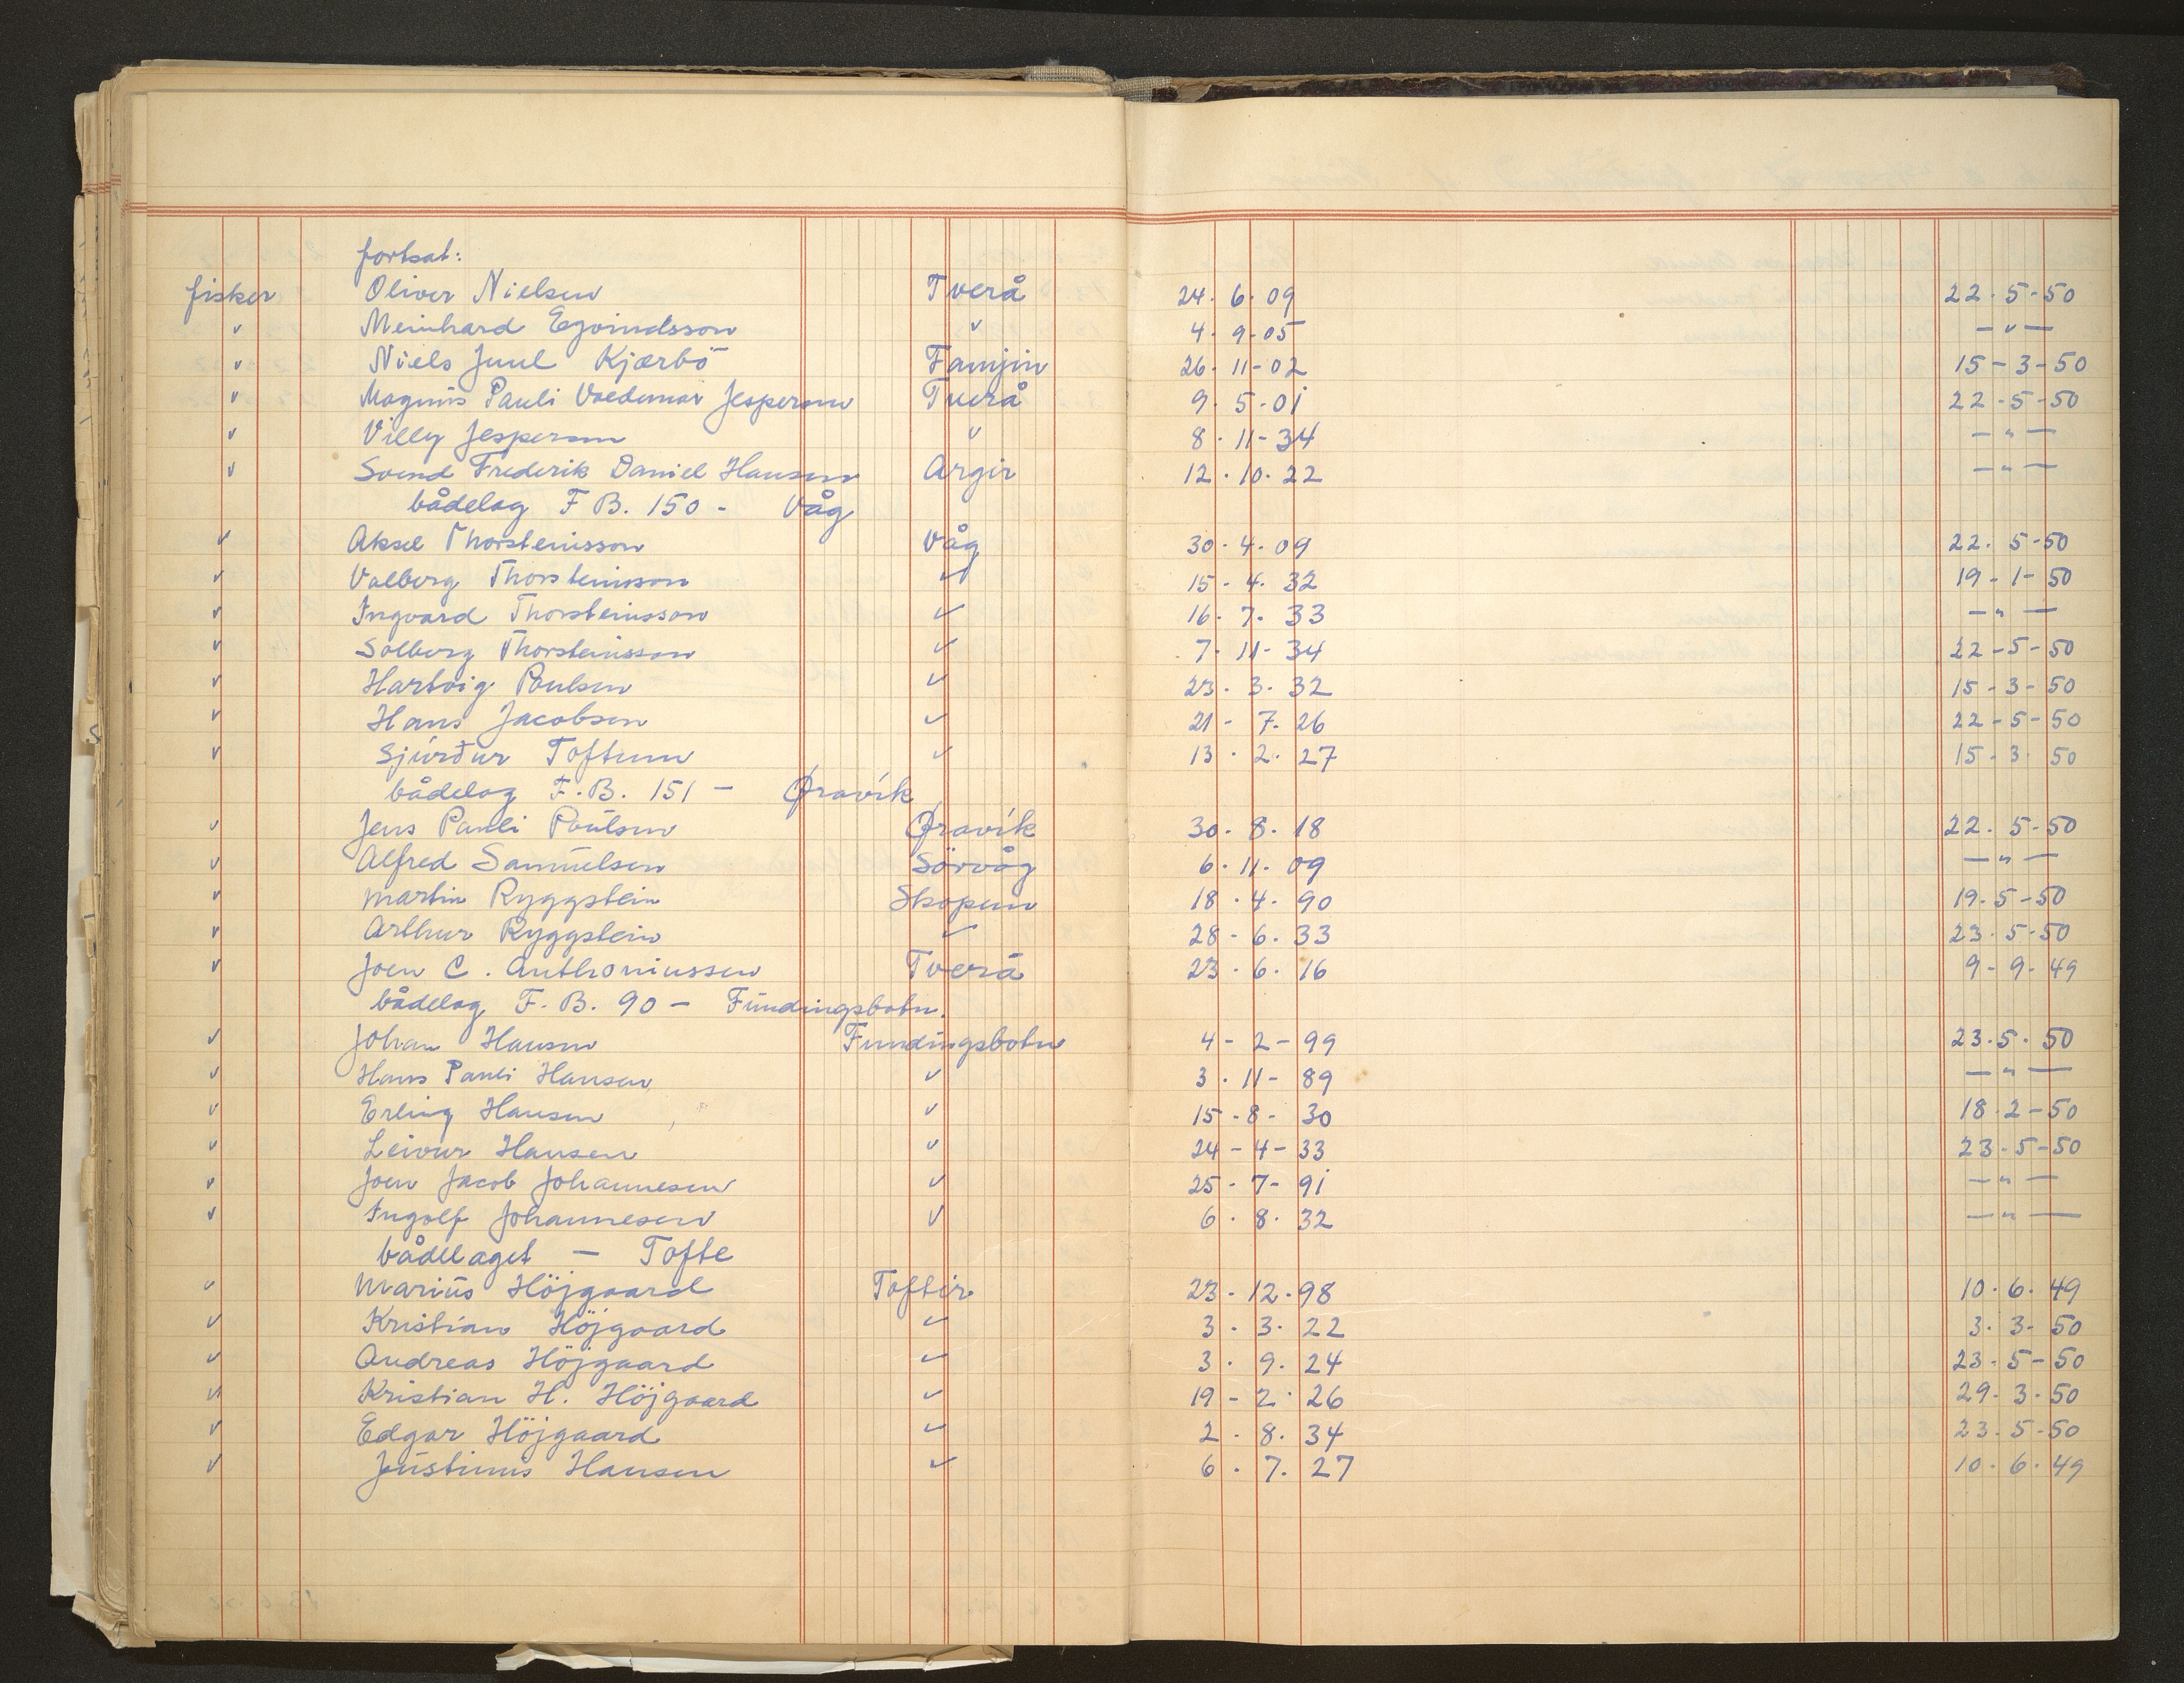 fortsat:
fisker Oliver Nielsen Tverå 24. 6. 09 22-5-50
" Meinhard Egvindsson " 4. 9-05 — " —
" Niels Juul Kjærbö Famjin 26. 11-02 15-3-50
" Magnus Pauli Valdemar Jespersen Tverå 9. 5-01 22-5-50
" Villy Jespersen " 8. 11-34 — " —
" Svend Frederik Daniel Hansen Argir 12. 10. 22 — " —
bådelag F B. 150 - Våg
" Aksel Thorsteinsson Våg 30. 4. 09 22. 5-50
" Valberg Thorsteinsson " 15-4. 32 19-1-50
" Ingvard Thorsteinsson " 16. 7. 33 — " —
" Solberg Thorsteinsson " 7-11-34 22-5-50
" Hartvig Poulsen " 23. 3. 32 15-3-50
" Hans Jacobsen " 21-7. 26 22-5-50
" Sjúrður Toftum " 13. 2. 27 15-3. 50
bådelag F. B. 151 - Øravík
" Jens Pauli Poulsen Øravík 30. 8. 18 22. 5-50
" Alfred Samuelsen Sörvåg 6. 11. 09 — " —
" Martin Ryggstein Skopun 18. 4. 90 19. 5-50
" Arthur Ryggstein " 28-6. 33 23-5-50
" Joen C. Anthoniussen Tverå 23. 6. 16 9-9-49
bådelag F. B. 90 - Fundingsbotn.
" Johan Hansen Fundingsbotn 4-2-99 23. 5. 50
" Hans Pauli Hansen " 3. 11-89 — " —
" Erling Hansen " 15-8-30 18. 2-50
" Leivur Hansen " 24-4-33 23-5-50
" Joen Jacob Johannesen " 25-7-91 — " —
" Ingolf Johannesen " 6. 8. 32 — " —
bådelaget - Tofte
" Marius Höjgaard Toftir 23-12. 98 10. 6. 49
" Kristian Höjgaard " 3. 3. 22 3. 3-50
" Andreas Höjgaard " 3. 9. 24 23-5-50
" Kristian H. Höjgaard " 19-2. 26 29. 3-50
" Edgar Höjgaard " 2. 8. 34 23-5-50
" Justinus Hansen " 6. 7. 27 10. 6. 49